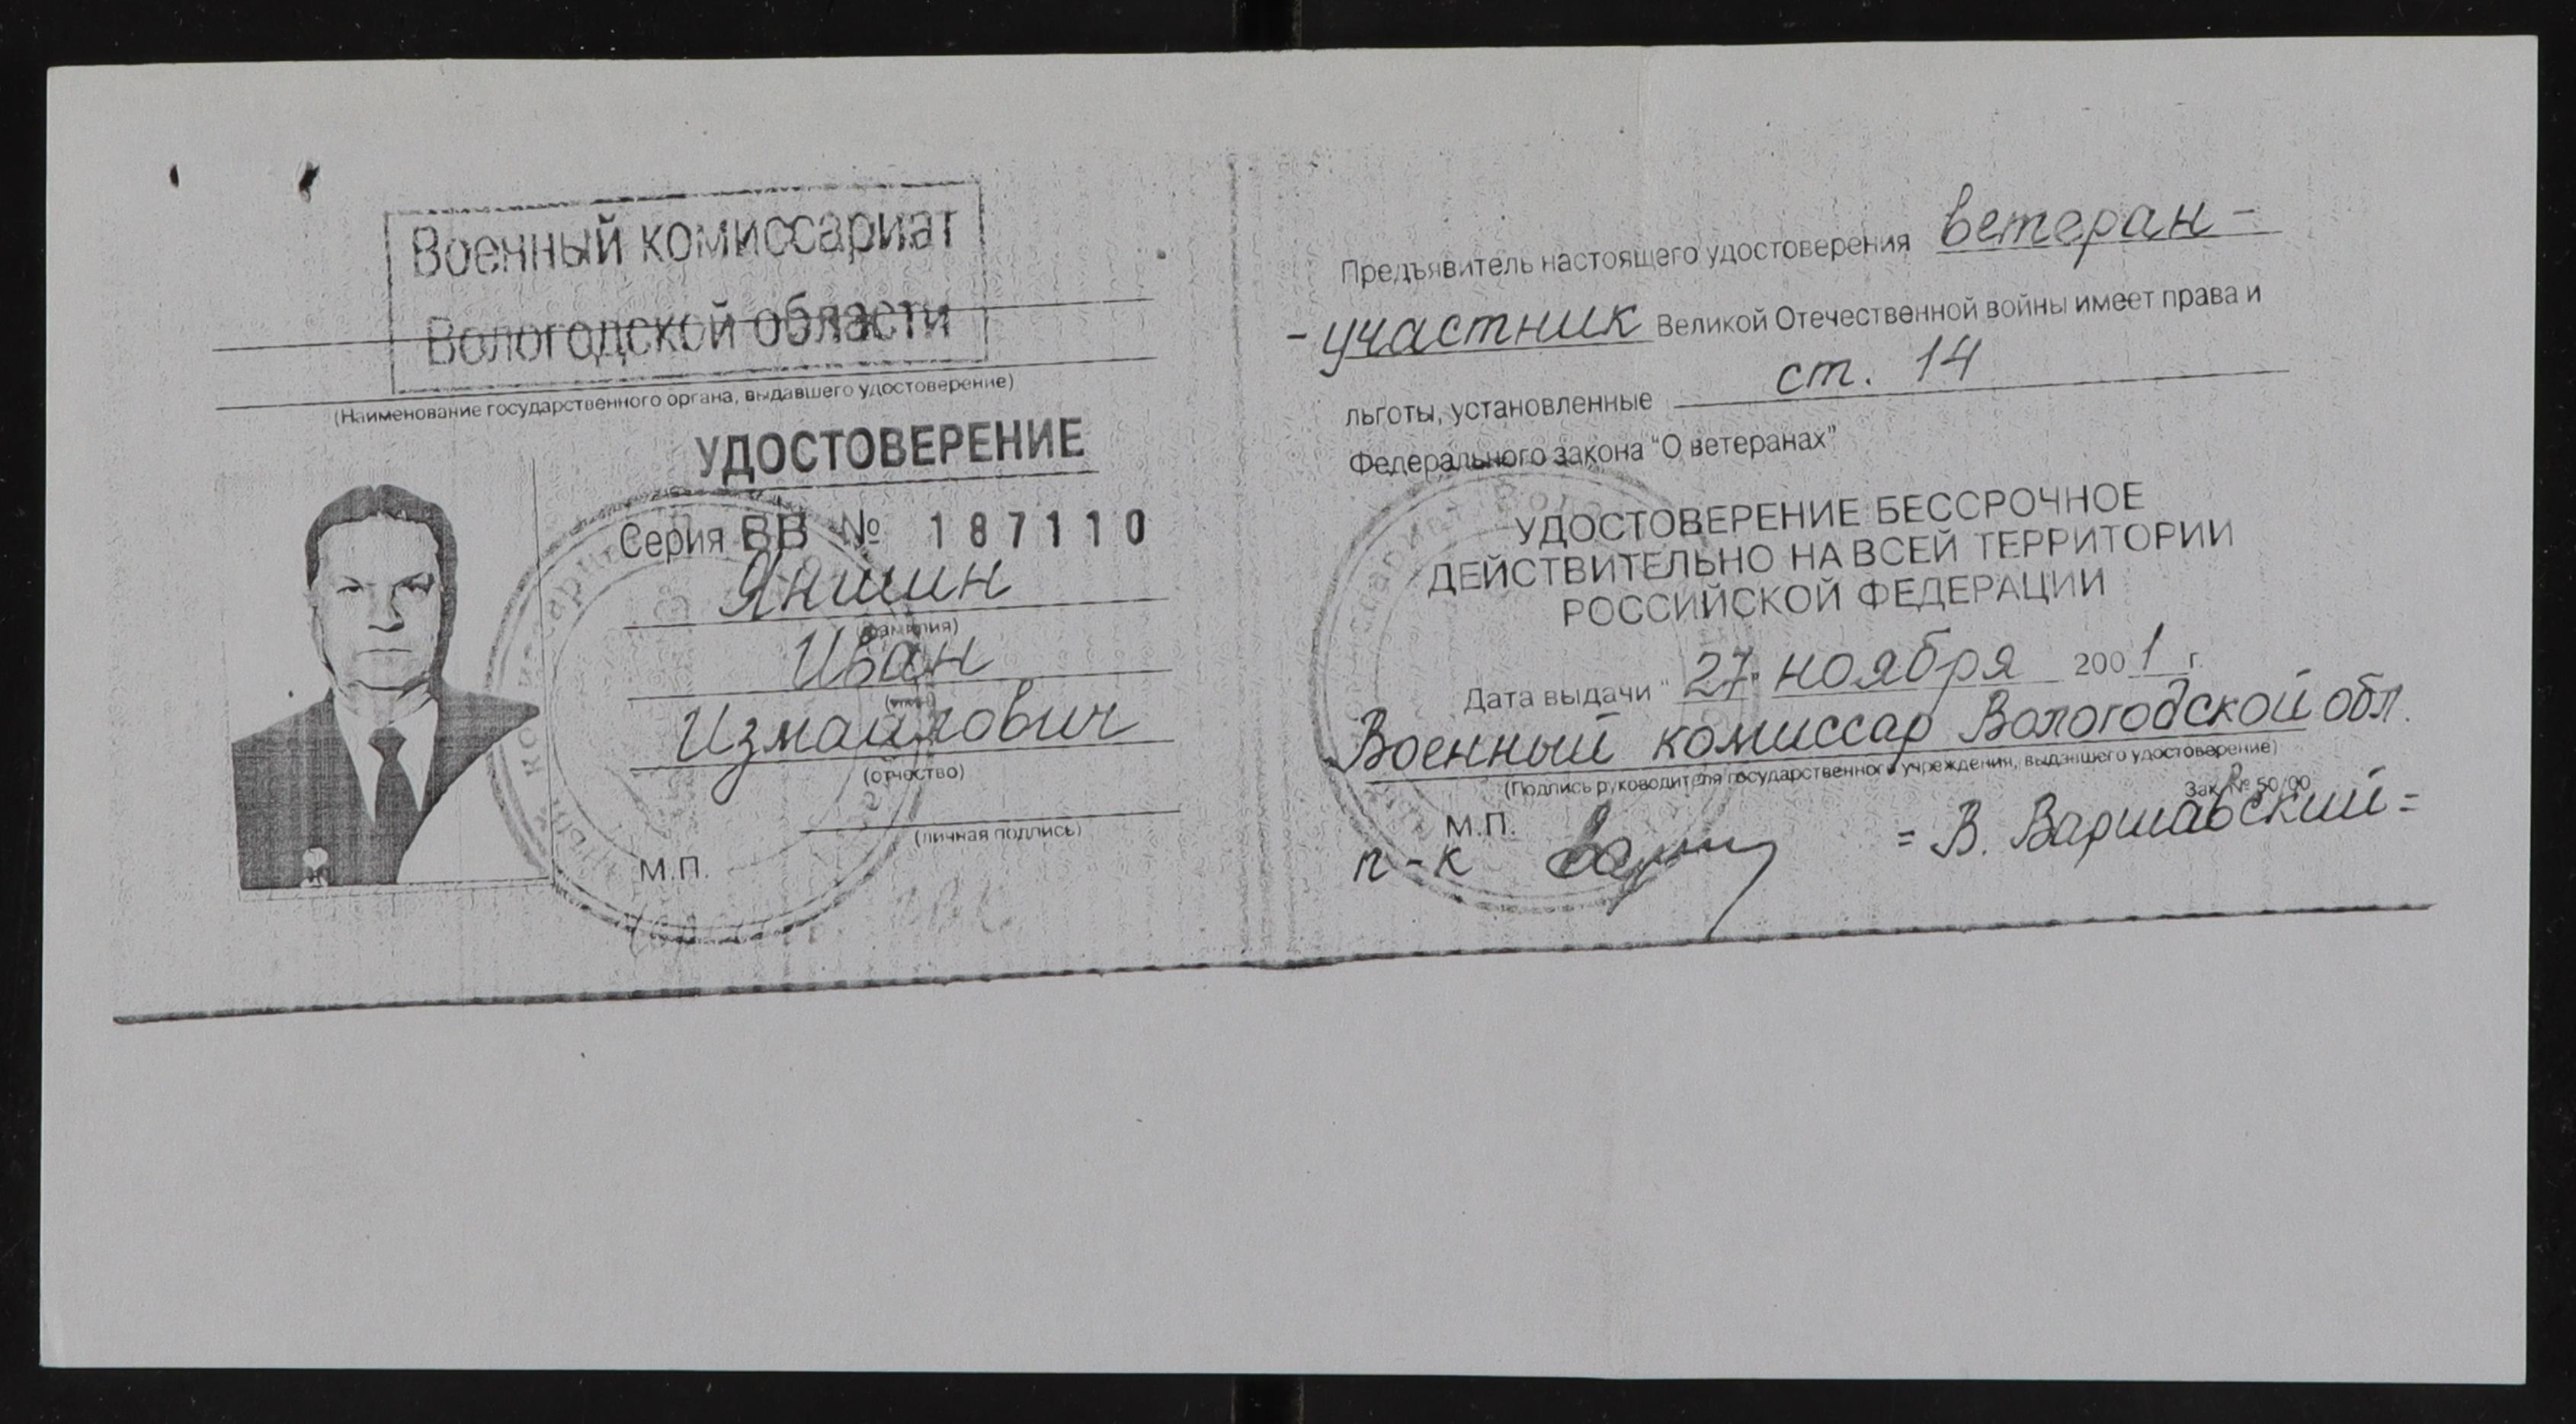 Военный комиссариат
Вологодской области
(Наименование государственного органа, выдавшего удостоверение)
УДОСТОВЕРЕНИЕ
Серия ВВ № 187110
Яншин
(фамилия)
Иван
(имя)
Измаилович
(отчество)
(личная подпись)
М.П.
Предъявитель настоящего удостоверения ветеран-
-участник Великой Отечественной войны имеет права и
льготы, установленные ст. 14
Федерального закона "О ветеранах"
УДОСТОВЕРЕНИЕ БЕССРОЧНОЕ
ДЕЙСТВИТЕЛЬНО НА ВСЕЙ ТЕРРИТОРИИ
РОССИЙСКОЙ ФЕДЕРАЦИИ
Дата выдачи "27" ноября 2001 г.
Военный комиссар Вологодской обл.
(Подпись руководителя государственного учреждения, выдавшего удостоверение)
Зак. № 50/00
М.П.
п-к = В. Варшавский =